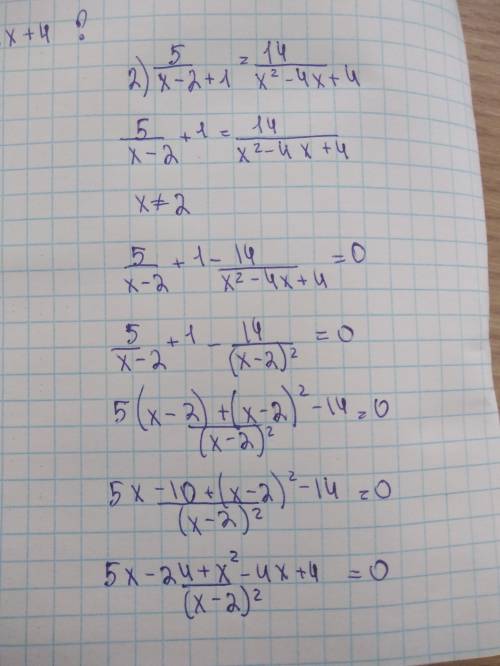 x+4 ?
2) 5/(x-2+1) = 14/(x²-4x+4)
5/(x-2) + 1 = 14/(x²-4x+4)
x≠2
5/(x-2) + 1 - 14/(x²-4x+4) = 0
5/(x-2) + 1 - 14/(x-2)² = 0
(5(x-2)+(x-2)²-14)/(x-2)² = 0
(5x-10+(x-2)²-14)/(x-2)² = 0
(5x-24+x²-4x+4)/(x-2)² = 0